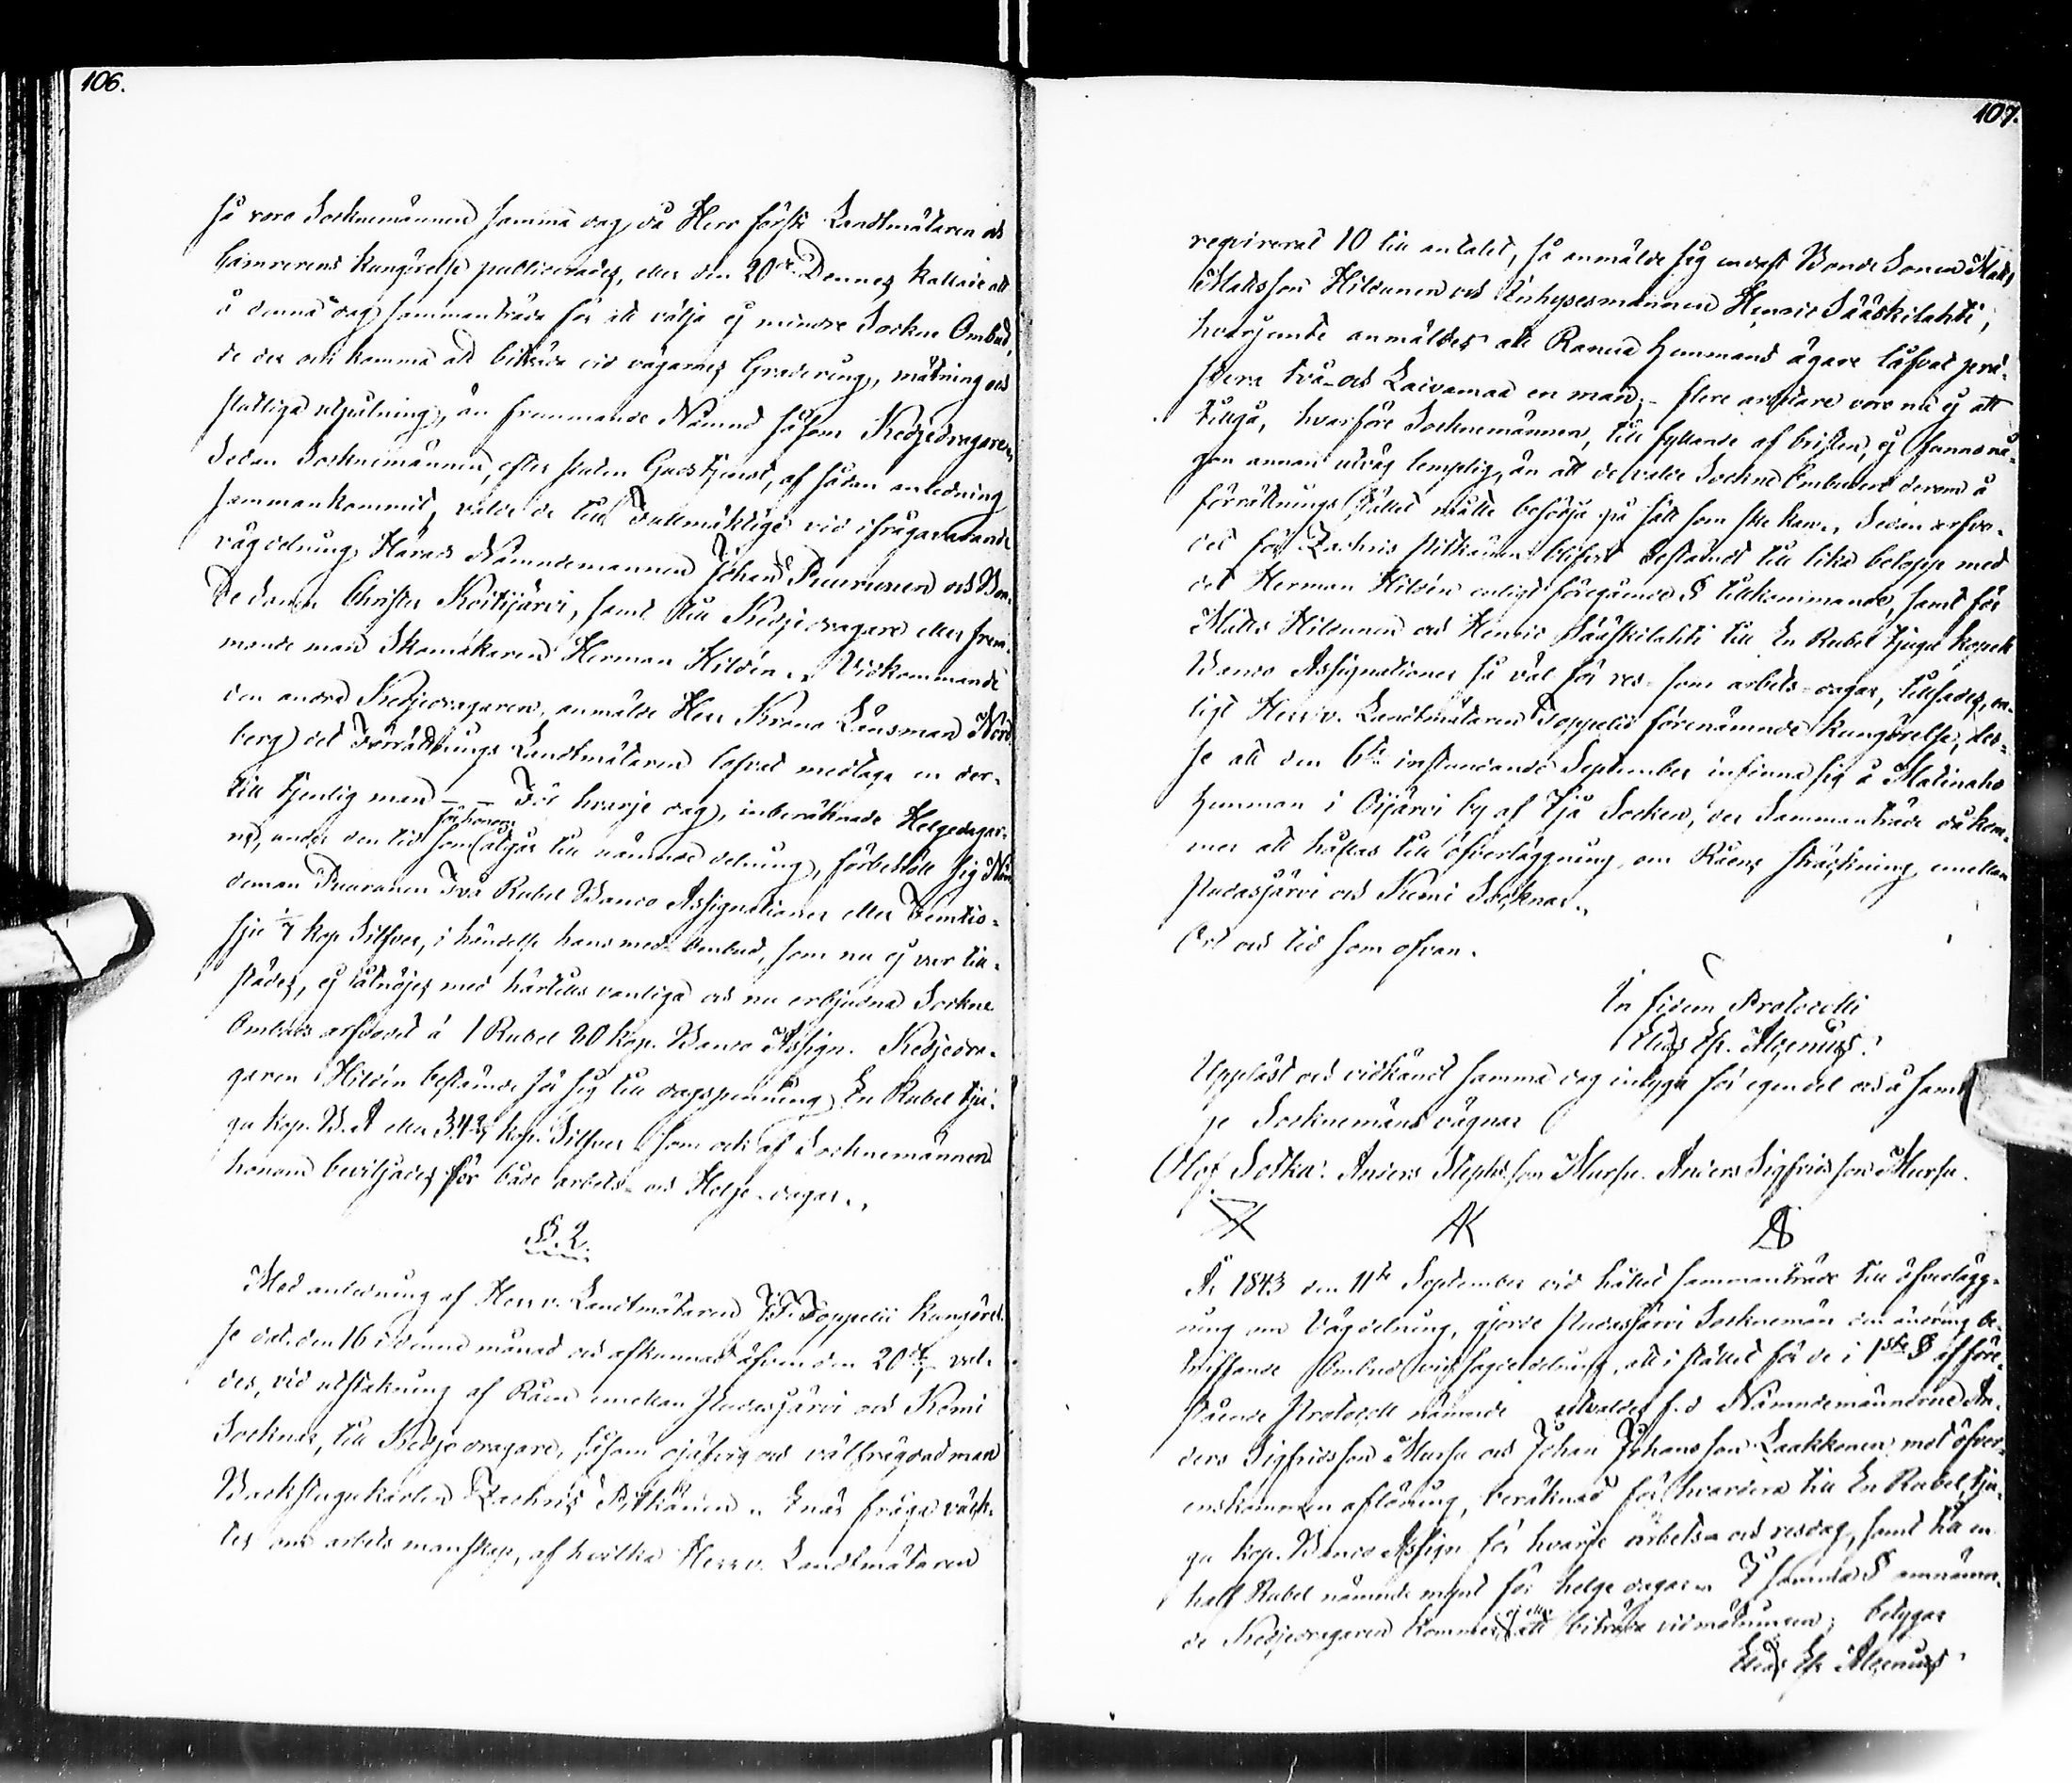 106.
så voro Socknemännen samma dag, då Herr förste Landtmätaren och
Camrerens kungörelse publicerades, eller den 20de Dennes kallade att
å denna dag sammanträda för att välja ej mindre Sockne Ombud,
de der ock komma att biträda vid vägarnes Gradering, mätning och
slutliga utpålning, än främmande Nämnd såsom Kedjedragaren,
Sedan Socknemännen, efter sluten Gudstjenst, af sådan anledning
sammankommit, valde de till Fullmäktige vid ifrågavarande
vägdelning Härads Nämndemannen Johan Puurunen och Bon-
de Sonen Christer Koitijärvi, samt till Kedjedragare eller främ-
mande man Skomakaren Herman Hildén. Vidkommande
den andra Kedjedragaren, anmälde Herr Krono Länsman Nord-
berg) det Förrättnings Landtmätaren lofvat medtaga en der-
till tjenlig man – – För hvarje dag, inberäknade Helgedagar-
ne, under den tid som för honom åtgår till nämnde delning, förbehöll sig Näm-
deman Puurunen Två Rubel Banco Assignationer eller Femtio-
sju 1/7 kop Silfver, i händelse hans med Ombud, som nu ej var till-
städes, ej åtnöjes med härtills vanliga och nu erbjudna Sockne
Ombuds arfvodet á 1 Rubel 20 kop. Banco Assign. Kedjedra-
garen Hildén bestämde för sig till dagspenning En Rubel tju-
gu kop. B. A eller 34 2/7 kop. Silfver som ock af Socknemännen
honom beviljades för både arbets- och Helge-dagar.
§. 2.
Med anledning af Herr v. Landtmätaren J. F. Toppelii kungörel-
se dat. den 16 i denne månad och afkunnad äfven den 20de, val-
des, vid utstakning af Råen emellan Pudasjärvi och Kemi
Socknar, till Kedjedragare, såsom ojäfvig och välfrägdad man
Backstugukarlen Zachris Pitkänen. Enär fråga väck-
tes om arbets manskap, af hvilka Herr v. Landtmätaren
107.
requirerat 10 till antalet, så anmälde sig endast Bonde Sonen Matts
Mattsson Hildunen och Inhysesmannen Henric Sääskilahti,
hvarjemte anmäldes att Ranua hemmans ägare låfvat pre-
stera två- och Laivamaa en man; – flere arbetare voro nu ej att
tillgå, hvarföre Socknemännen, till fyllande af bristen, ej funno nå-
gon annan utväg lemplig, än att de valde Sockne Ombuden derom å
förrättnings stället måtte besörja på sätt som ske kan., Sedan arfvo-
det för Zachris Pitkänen blifvit bestämdt till lika belopp med
det Herman Hildén enligt föregående § tillkommande, samt för
Matts Hildunen och Henric Sääskilahti till En Rubel tjugu kopek
Banco Assignationer så väl för res- som arbets-dagar, tillsades, en-
ligt Herr v. Landtmätaren Toppelii förenämnde kungörelse, des-
se att den 6te instundande September infinna sig å Matinaho
hemman i Oijärvi by af Ijo Socken, der Sammanträde då kom-
mer att hållas till öfverläggning om Råens sträckning emellan
Pudasjärvi och Kemi Socknar.
Ort och tid som ofvan.
In fidem Protocolli
Elias Ep. Alcenius.
Uppläst och vidkändt samma dag intyga för egen del och å samt-
ge Socknemäns vägnar
Olof Sotka. Anders Stephsson Mursu. Anders Sigfridsson Mursu.
År 1843 den 11te September vid hållet sammanträde till öfverlägg-
ning om Vägdelning, gjorde Pudasjärvi Socknemän den ändring be-
träffande Ombud vid sagde delning, att i stället för de i 1sta § af före-
stående Protocoll nämnde utvaldes f.d Nämndemännerne An-
ders Sigfridsson Mursu och Johan Johansson Laakkonen mot öfver-
enskommen aflöning, beräknad för hvardera till En Rubel, tju-
gu kop. Banco Assign för hvarje arbets- och resdag, samt till en
half Rubel nämnde mynt för helgedagar. I samma § omnämn-
de Kedjedragaren kommer ej eller att biträda vid mätningen; betygar
Elias Ep Alcenius.